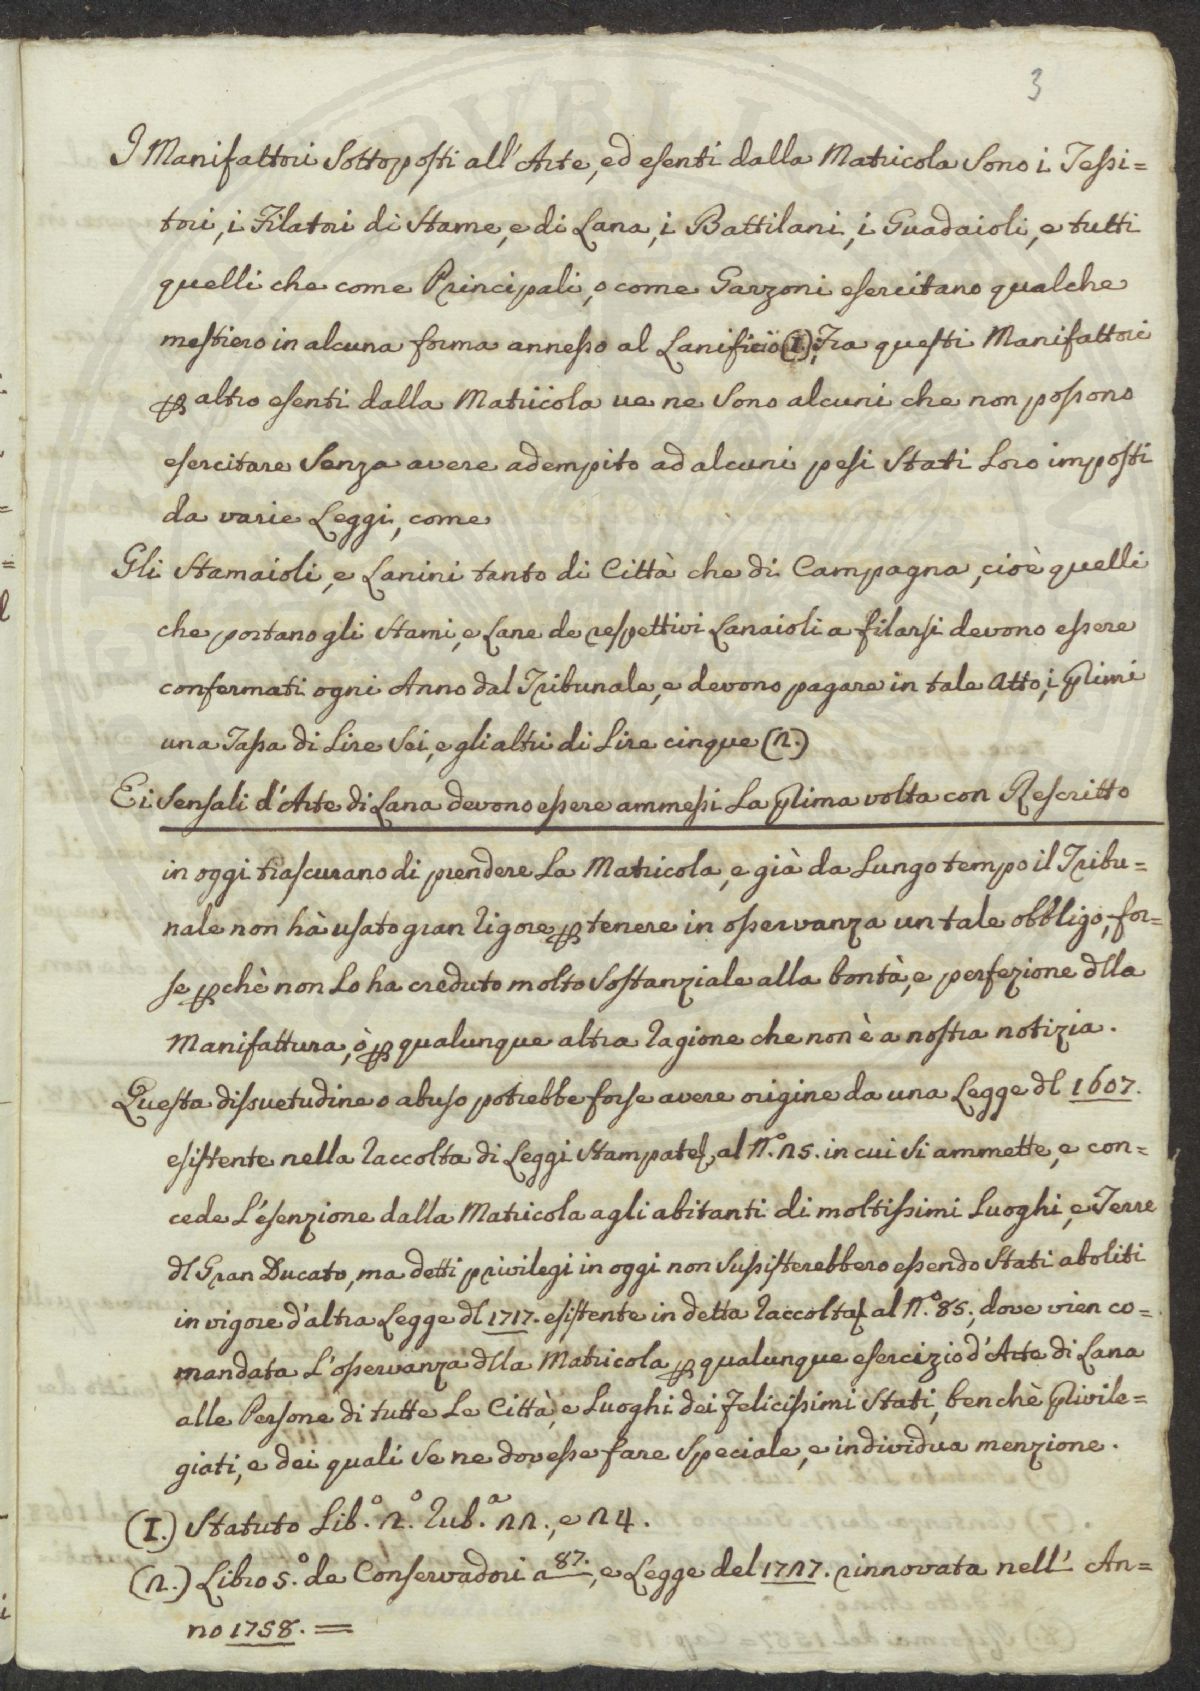 3
I Manifattori Sottoposti all'Arte, ed esenti dalla Matricola Sono i Tessi=
tori, i Filatori di Stame, e di Lana, i Battilani, i Guadaioli, e tutti
quelli che come Principali, o come Garzoni esercitano qualche
mestiero in alcuna forma annesso al Lanificio (I.); Fra questi Manifattori
ꝑ altro esenti dalla Matricola ve ne Sono alcuni che non possono
esercitare Senza avere adempito ad alcuni pesi Stati Loro imposti
da varie Leggi, come
Gli Stamaioli, e Lanini tanto di Città che di Campagna, cioè quelli
che portano gli Stami, e Lane de respettivi Lanaioli a filarsi devono essere
confermati ogni Anno dal Tribunale, e devono pagare in tale Atto, i Primi
una Tassa di Lire Sei, e gli altri di Lire cinque (2.)
E i Sensali d'Arte di Lana devono essere ammessi La Prima volta con Rescritto
in oggi trascurano di prendere La Matricola, e già da Lungo tempo il Tribu=
nale non hà usato gran rigore ꝑ tenere in osservanza un tale obbligo, for=
se ꝑchè non Lo ha creduto molto Sostanziale alla bontà, e perfezione dlla
Manifattura, ò ꝑ qualunque altra ragione che non è a nostra notizia.
Questa dissuetudine o abuso potrebbe forse avere origine da una Legge dl 1607.
esistente nella raccolta di Leggi Stampate, al N.º 25. in cui Si ammette, e con=
cede L'esenzione dalla Matricola agli abitanti di moltissimi Luoghi, e Terre
dl Gran Ducato, ma detti privilegi in oggi non Sussisterebbero essendo Stati aboliti
in vigore d'altra Legge dl 1717. esistente in detta raccolta al N.º 85., dove vien co=
mandata L'osservanza dlla Matricola ꝑ qualunque esercizio d'Arte di Lana
alle Persone di tutte Le Città, e Luoghi dei Felicissimi Stati, benchè Privile=
giati, e dei quali Se ne dovesse fare Speciale, e individua menzione.
(I.) Statuto Lib.º 2.º rub.ª 22., e 24.
(2.) Libro 5.º de Conservadori a 87., e Legge del 1727. rinnovata nell' An=
no 1758. =